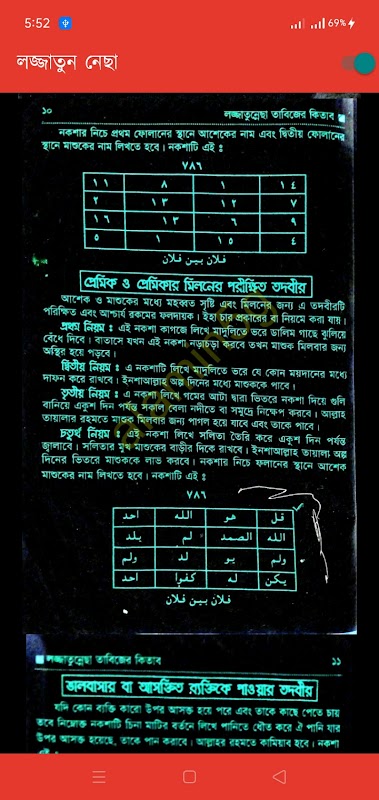 5:52
69%
লজ্জাতুন নেছা
১০ লজ্জাতুন্নেছা তাবিজের কিতাব
নকশার নিচে প্রথম ফোলানের স্থানে আশেকের নাম এবং দ্বিতীয় ফোলানের
স্থানে মাশুকের নাম লিখতে হবে। নকশাটি এই ঃ
٧٨٦
١١ ٨ ١ ١٤
٢ ١٣ ١٢ ٧
١٦ ١٣ ٦ ٩
٥ ١ ١٥ ٤
فلان بين فلان
প্রেমিক ও প্রেমিকার মিলনের পরীক্ষিত তদবীর
আশেক ও মাশুকের মধ্যে মহব্বত সৃষ্টি এবং মিলনের জন্য এ তদবীরটি
পরিক্ষিত এবং আশ্চার্য রকমের ফলদায়ক। ইহা চার প্রকারের বা নিয়মে করা যায়।
প্রথম নিয়ম ঃ এই নকশা কাগজে লিখে মাদুলিতে ভরে ডালিম গাছে ঝুলিয়ে
বেঁধে দিবে। বাতাসে যখন এই নকশা নড়াচড়া করবে তখন মাশুক মিলবার জন্য
অস্থির হয়ে পড়বে।
দ্বিতীয় নিয়ম ঃ এ নকশাটি লিখে মাদুলিতে ভরে যে কোন ময়দানের মধ্যে
দাফন করে রাখবে। ইনশাআল্লাহ অল্প দিনের মধ্যে মাশুককে পাবে।
তৃতীয় নিয়ম ঃ এ নকশা লিখে গমের আটা দ্বারা ভিতরে নকশা দিয়ে গুলি
বানিয়ে একুশ দিন পর্যন্ত সকাল বেলা নদীতে বা সমুদ্রে নিক্ষেপ করবে। আল্লাহ
তায়ালার রহমতে মাশুক মিলবার জন্য পাগল হয়ে যাবে এবং তাকে পাবে।
চতুর্থ নিয়ম ঃ এই নকশা লিখে সলিতা তৈরি করে একুশ দিন পর্যন্ত
জ্বালাবে। সলিতার মুখ মাশুকের বাড়ীর দিকে রাখবে। ইনশাআল্লাহ তায়ালা অল্প
দিনের ভিতরে মাশুককে লাভ করবে। নকশার নিচে ফলানের স্থানে আশেক
মাশুকের নাম লিখতে হবে। নকশাটি এই ঃ
٧٨٦
قل هو الله احد
الله الصمد لم يلد
ولم يو لد ولم
يكن له كفوا احد
فلان بين فلان
লজ্জাতুন্নেছা তাবিজের কিতাব ১১
ভালবাসার বা আসক্তিত ব্যক্তিকে পাওয়ার তদবীর
যদি কোন ব্যক্তি কারো উপর আসক্ত হয়ে পরে এবং তাকে কাছে পেতে চায়
তবে নিম্নোক্ত নকশাটি চিনা মাটির বর্তনে লিখে পানিতে ধৌত করে ঐ পানি যার
উপর আসক্ত হয়েছে, তাকে পান করাবে। আল্লাহর রহমতে কামিয়াব হবে। নকশা